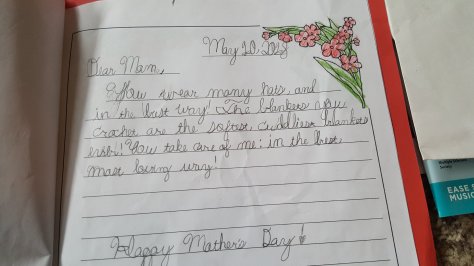 May 10, 2018
Dear Mom,
You wear many hats, and
in the best way! The blankets you
crochet are the softest, cuddliest blankets
ever! You take care of me in the best,
most loving way!
Happy Mother's Day!
EASE
MUSIC